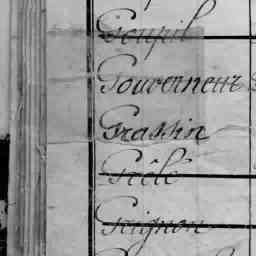 Goupil
Gouverneur
Grassin
Grêlé
Guignon